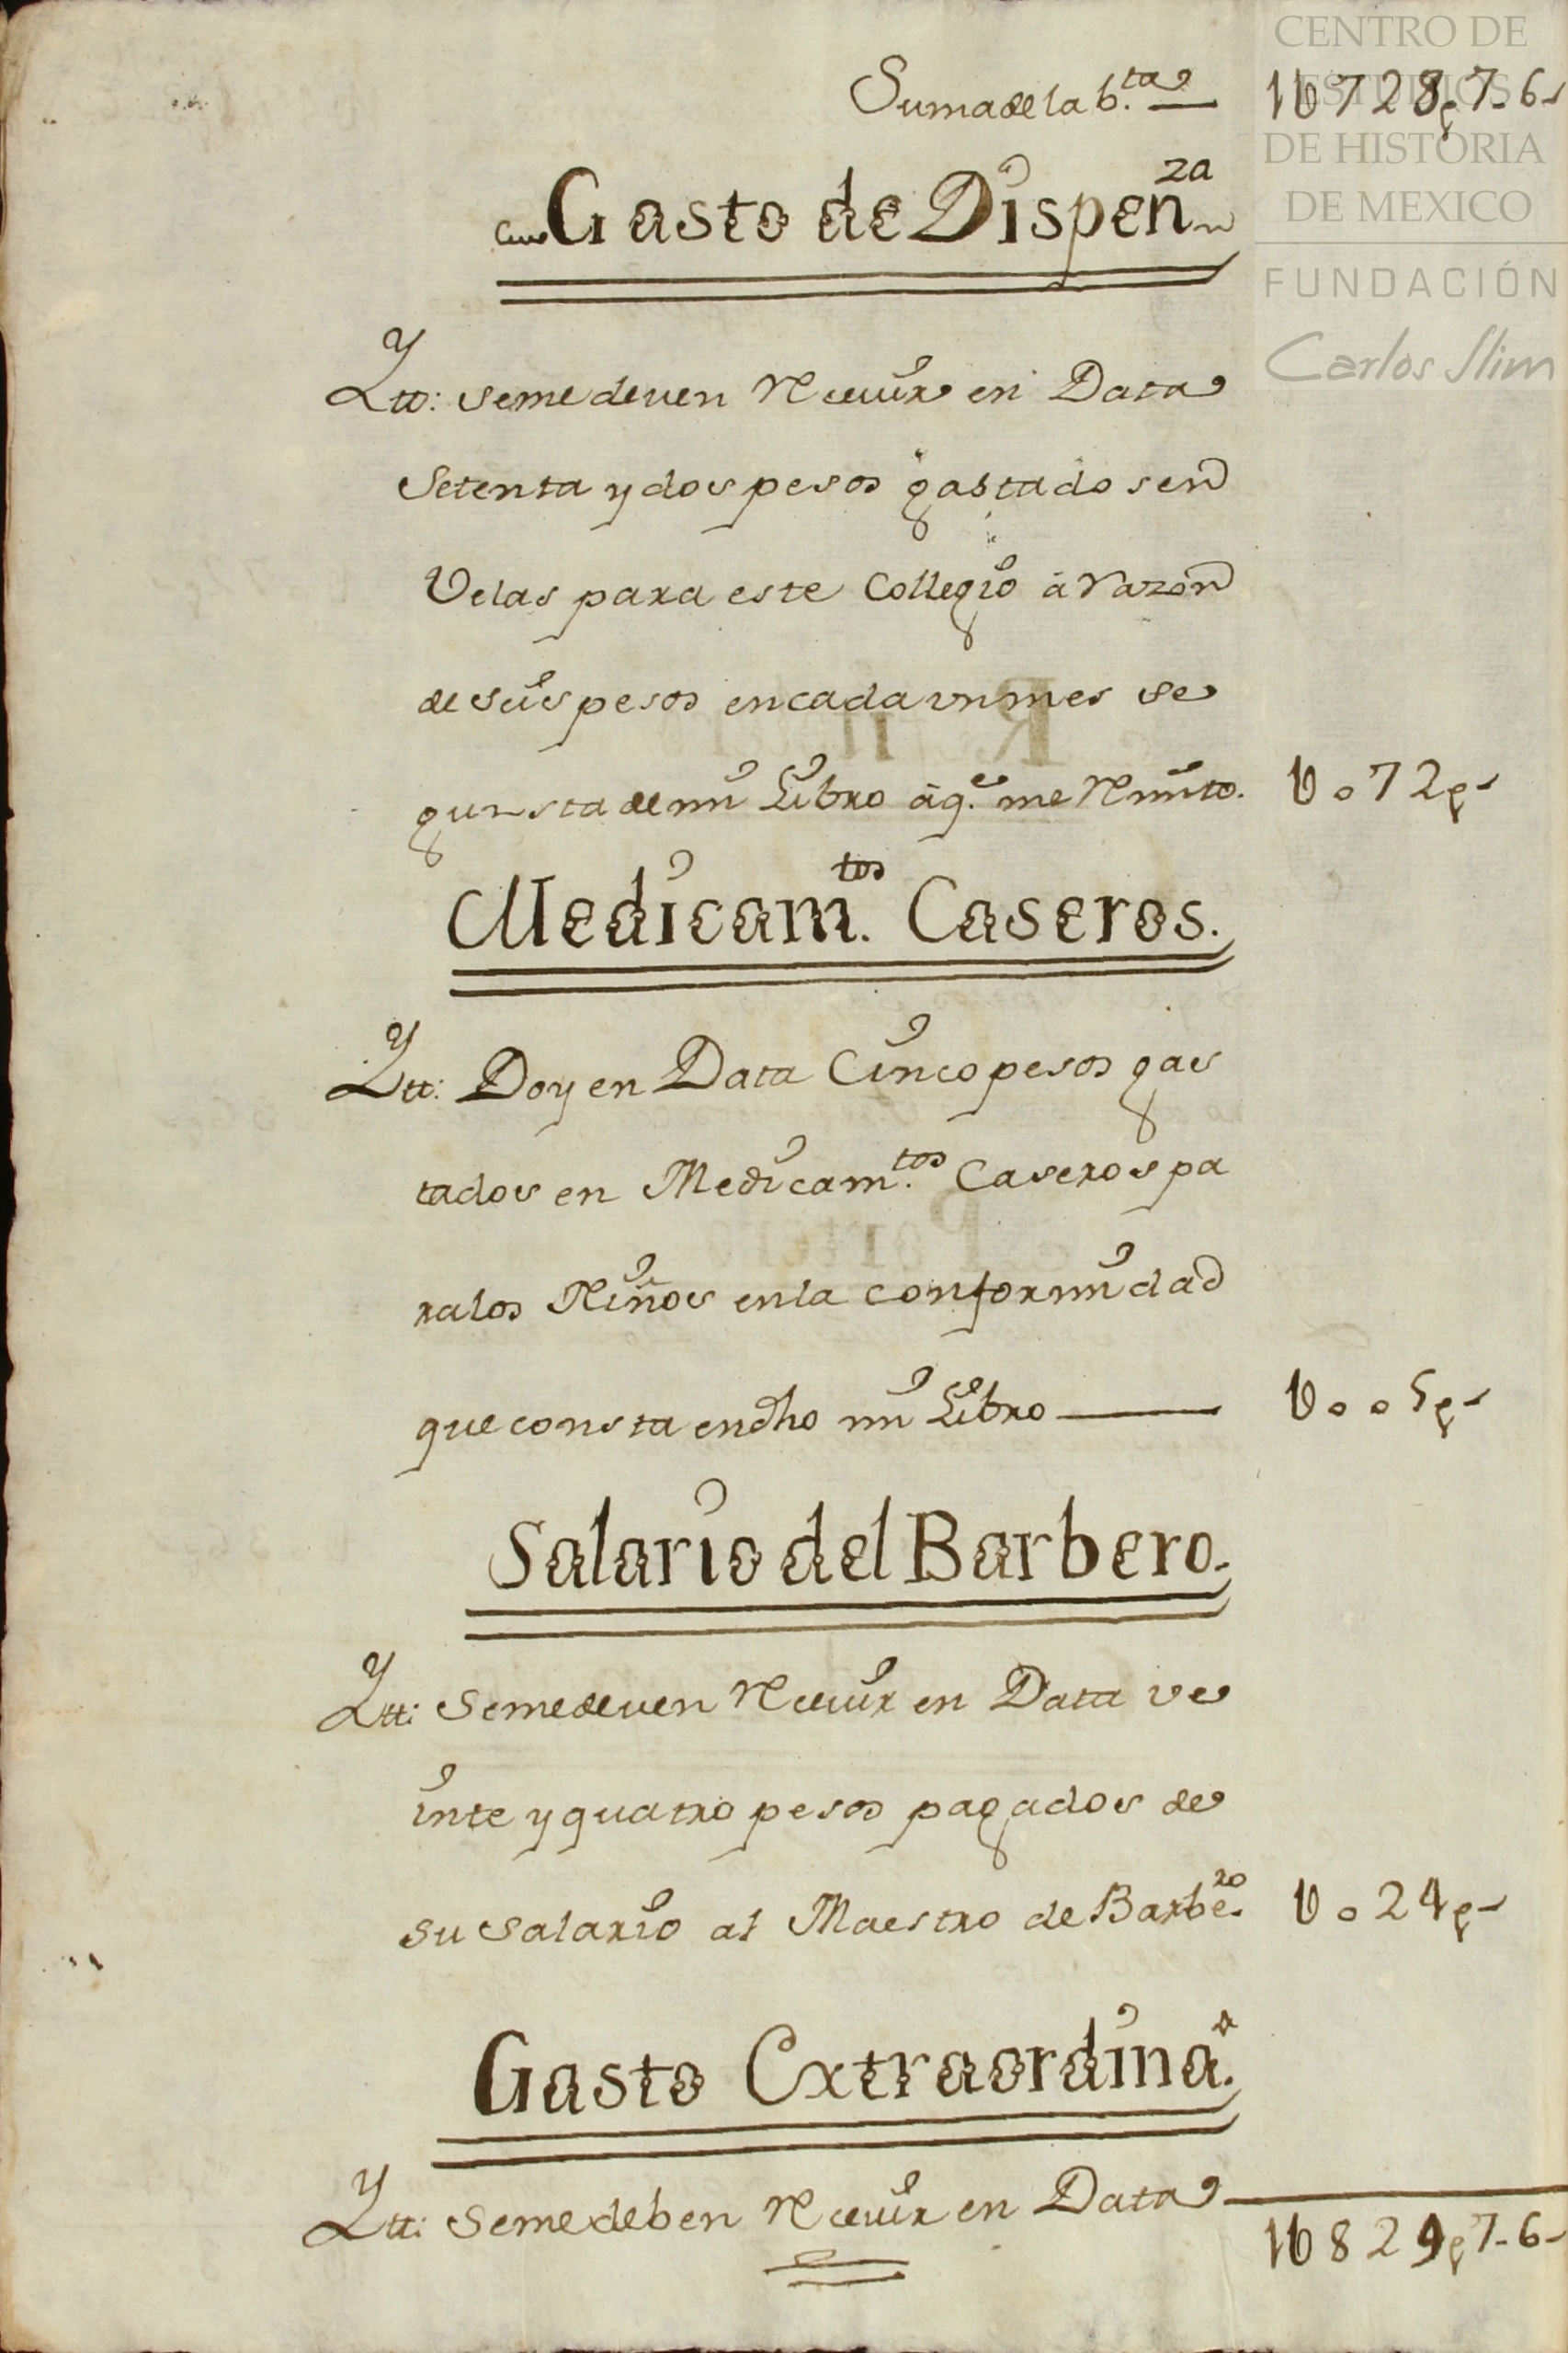 CENTRO DE
ESTUDIOS
DE HISTORIA
DE MEXICO
FUNDACIÓN
Carlos Slim
Suma de la b.ta 1U728p7-6
Gasto de Dispenza
Ytt: Se me deven Recivir en Data
Setenta y dos pesos gastados en
Velas para este Collegio á razón
de seis pesos en cada un mes se
gun sta de mi Libro á q.e me Rmito. U072p
Medicam.tos Caseros.
Ytt: Doy en Data Cinco pesos gas
tados en Medicam.tos Caseros pa
ra los Niños en la conformidad
que consta en dho mi Libro U005p
Salario del Barbero.
Ytt: Se me deven Recivir en Data ve
inte y quatro pesos pagados de
su salario al Maestro de Barbero U024p
Gasto Extraordina.o
Ytt: Se me deben Recivir en Data
1U829p7-6